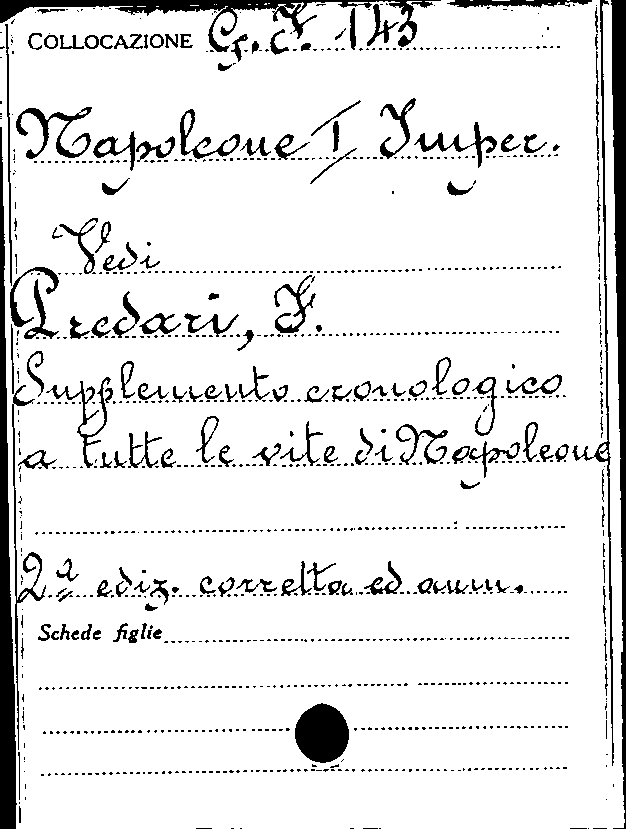 COLLOCAZIONE G. F. 143
Napoleone I Imper.
Vedi
Predari, F.
Supplemento cronologico
a tutte le vite di Napoleone
2ª ediz. corretta ed aum.
Schede figlie